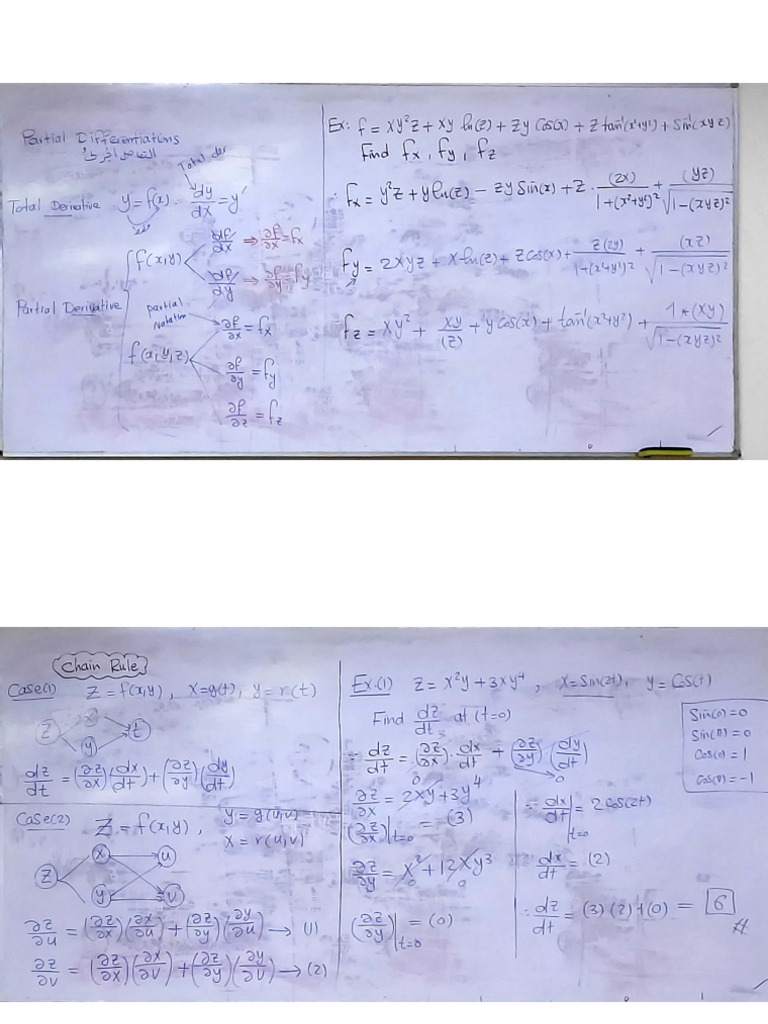 Partial Differentiations
Total der
Total Derivative y = f(x) . dy/dx = y'
f(x,y)
df/dx ⇒ ∂f/∂x = fx
df/dy ⇒ ∂f/∂y = fy
Partial Derivative
partial
Notation
f(x,y,z)
∂f/∂x = fx
∂f/∂y = fy
∂f/∂z = fz
Ex: f = xy²z + xy ln(z) + zy Cos(x) + z tan⁻¹(x²+y²) + Sin⁻¹(xyz)
Find fx , fy , fz
∴ fx = y²z + y ln(z) − zy Sin(x) + z · (2x)/(1+(x²+y²)²) + (yz)/√(1−(xyz)²)
fy = 2xyz + x ln(z) + z Cos(x) + z(2y)/(1+(x²+y²)²) + (xz)/√(1−(xyz)²)
fz = xy² + xy/(z) + y Cos(x) + tan⁻¹(x²+y²) + 1*(xy)/√(1−(xyz)²)
Chain Rule
Case(1) Z = f(x,y) , x=g(t), y = r(t)
Z x y t
dz/dt = (∂z/∂x)(dx/dt) + (∂z/∂y)(dy/dt)
Case(2) Z = f(x,y) , y = g(u,v)
x = r(u,v)
Z x y u v
∂z/∂u = (∂z/∂x)(∂x/∂u) + (∂z/∂y)(∂y/∂u) → (1)
∂z/∂v = (∂z/∂x)(∂x/∂v) + (∂z/∂y)(∂y/∂v) → (2)
Ex.(1) z = x²y + 3xy⁴ , x=Sin(2t), y = Cos(t)
Find dz/dt at (t=0)
∵ dz/dt = (∂z/∂x) · dx/dt + (∂z/∂y)(dy/dt) 0
∂z/∂x = 2xy + 3y⁴ 0
(∂z/∂x)|t=0 = (3)
∂z/∂y = x² + 12xy³ 0 0
(∂z/∂y)|t=0 = (0)
Sin(0) = 0
Sin(π) = 0
Cos(0) = 1
Cos(π) = −1
∵ dx/dt|t=0 = 2 Cos(2t)
dx/dt = (2)
∴ dz/dt = (3)(2)+(0) = 6
#